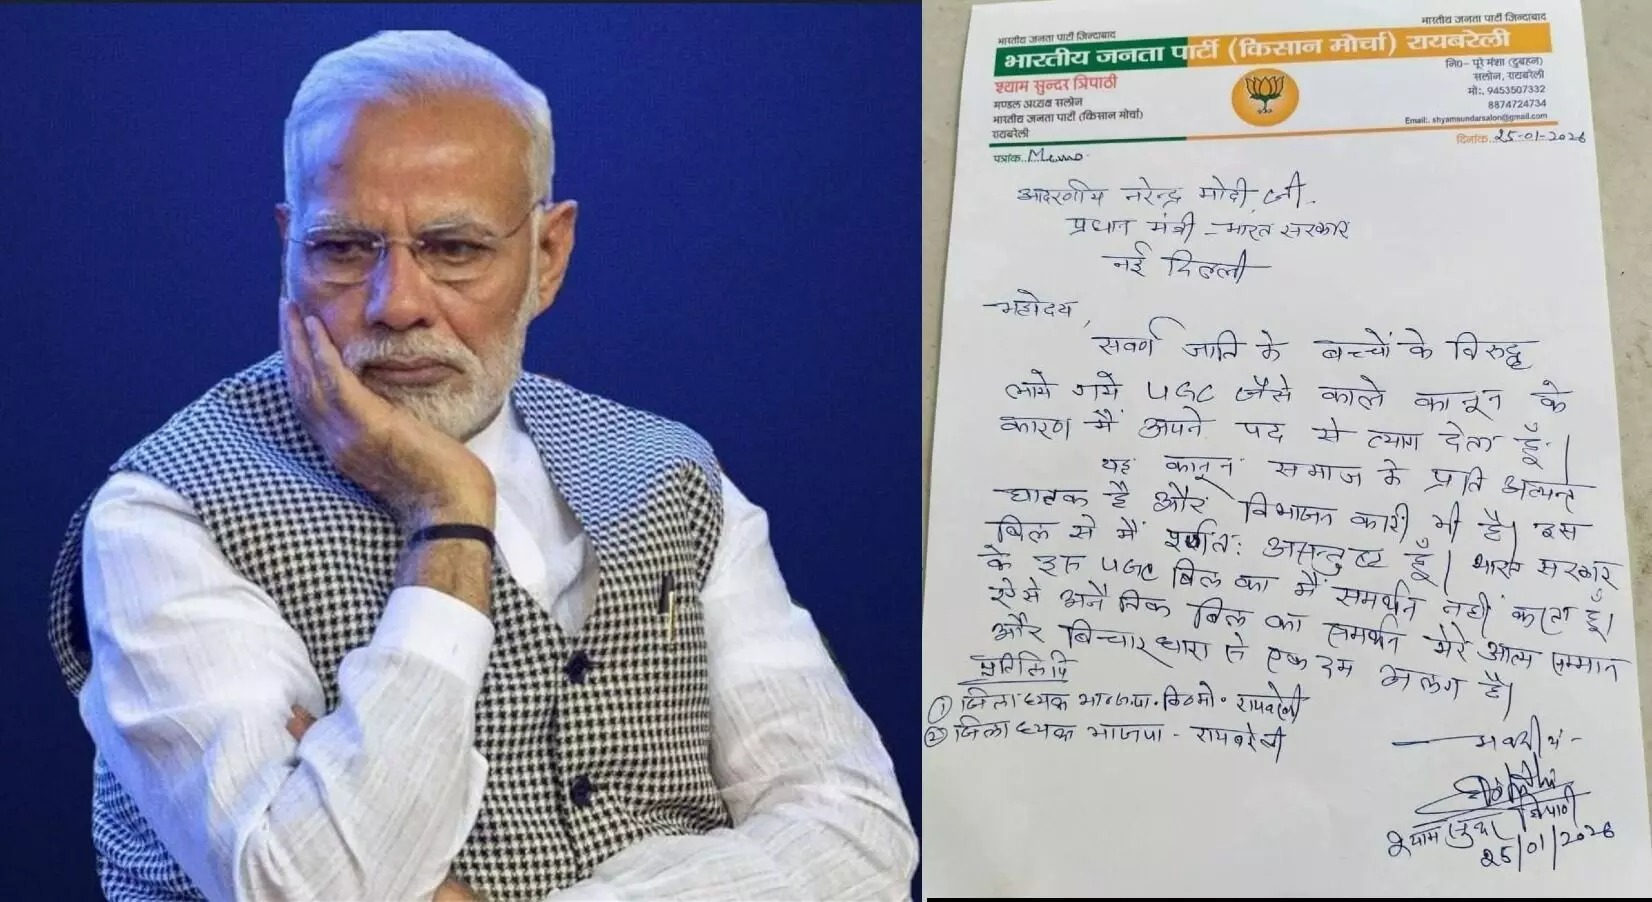 भारतीय जनता पार्टी जिन्दाबाद
भारतीय जनता पार्टी जिन्दाबाद
भारतीय जनता पार्टी (किसान मोर्चा) रायबरेली
श्याम सुन्दर त्रिपाठी
मण्डल अध्यक्ष सलोन
भारतीय जनता पार्टी (किसान मोर्चा)
रायबरेली
नि०- पूरे मंशा (दुबहन)
सलोन, रायबरेली
मो:. 9453507332
8874724734
Email:. shyamsundarsalon@gmail.com
पत्रांक..Memo.
दिनांक..25-01-2026
आदरणीय नरेन्द्र मोदी जी.
प्रधान मंत्री - भारत सरकार
नई दिल्ली
महोदय,
सवर्ण जाति के बच्चों के विरुद्ध
लाये गये UGC जैसे काले कानून के
कारण मैं अपने पद से त्याग देता हूँ।
यह कानून समाज के प्रति अत्यन्त
घातक है और विभाजन कारी भी है। इस
बिल से मैं पूर्णतः असन्तुष्ट हूँ। भारत सरकार
के इस UGC बिल का मैं समर्थन नहीं करता हूँ।
ऐसे अनैतिक बिल का समर्थन मेरे आत्म सम्मान
और विचारधारा से एकदम अलग है।
प्रतिलिपि
① जिलाध्यक्ष भाजपा.कि०मो० रायबरेली
② जिलाध्यक्ष भाजपा - रायबरेली
भवदीय -
श्याम सुन्दर त्रिपाठी
25/01/2026